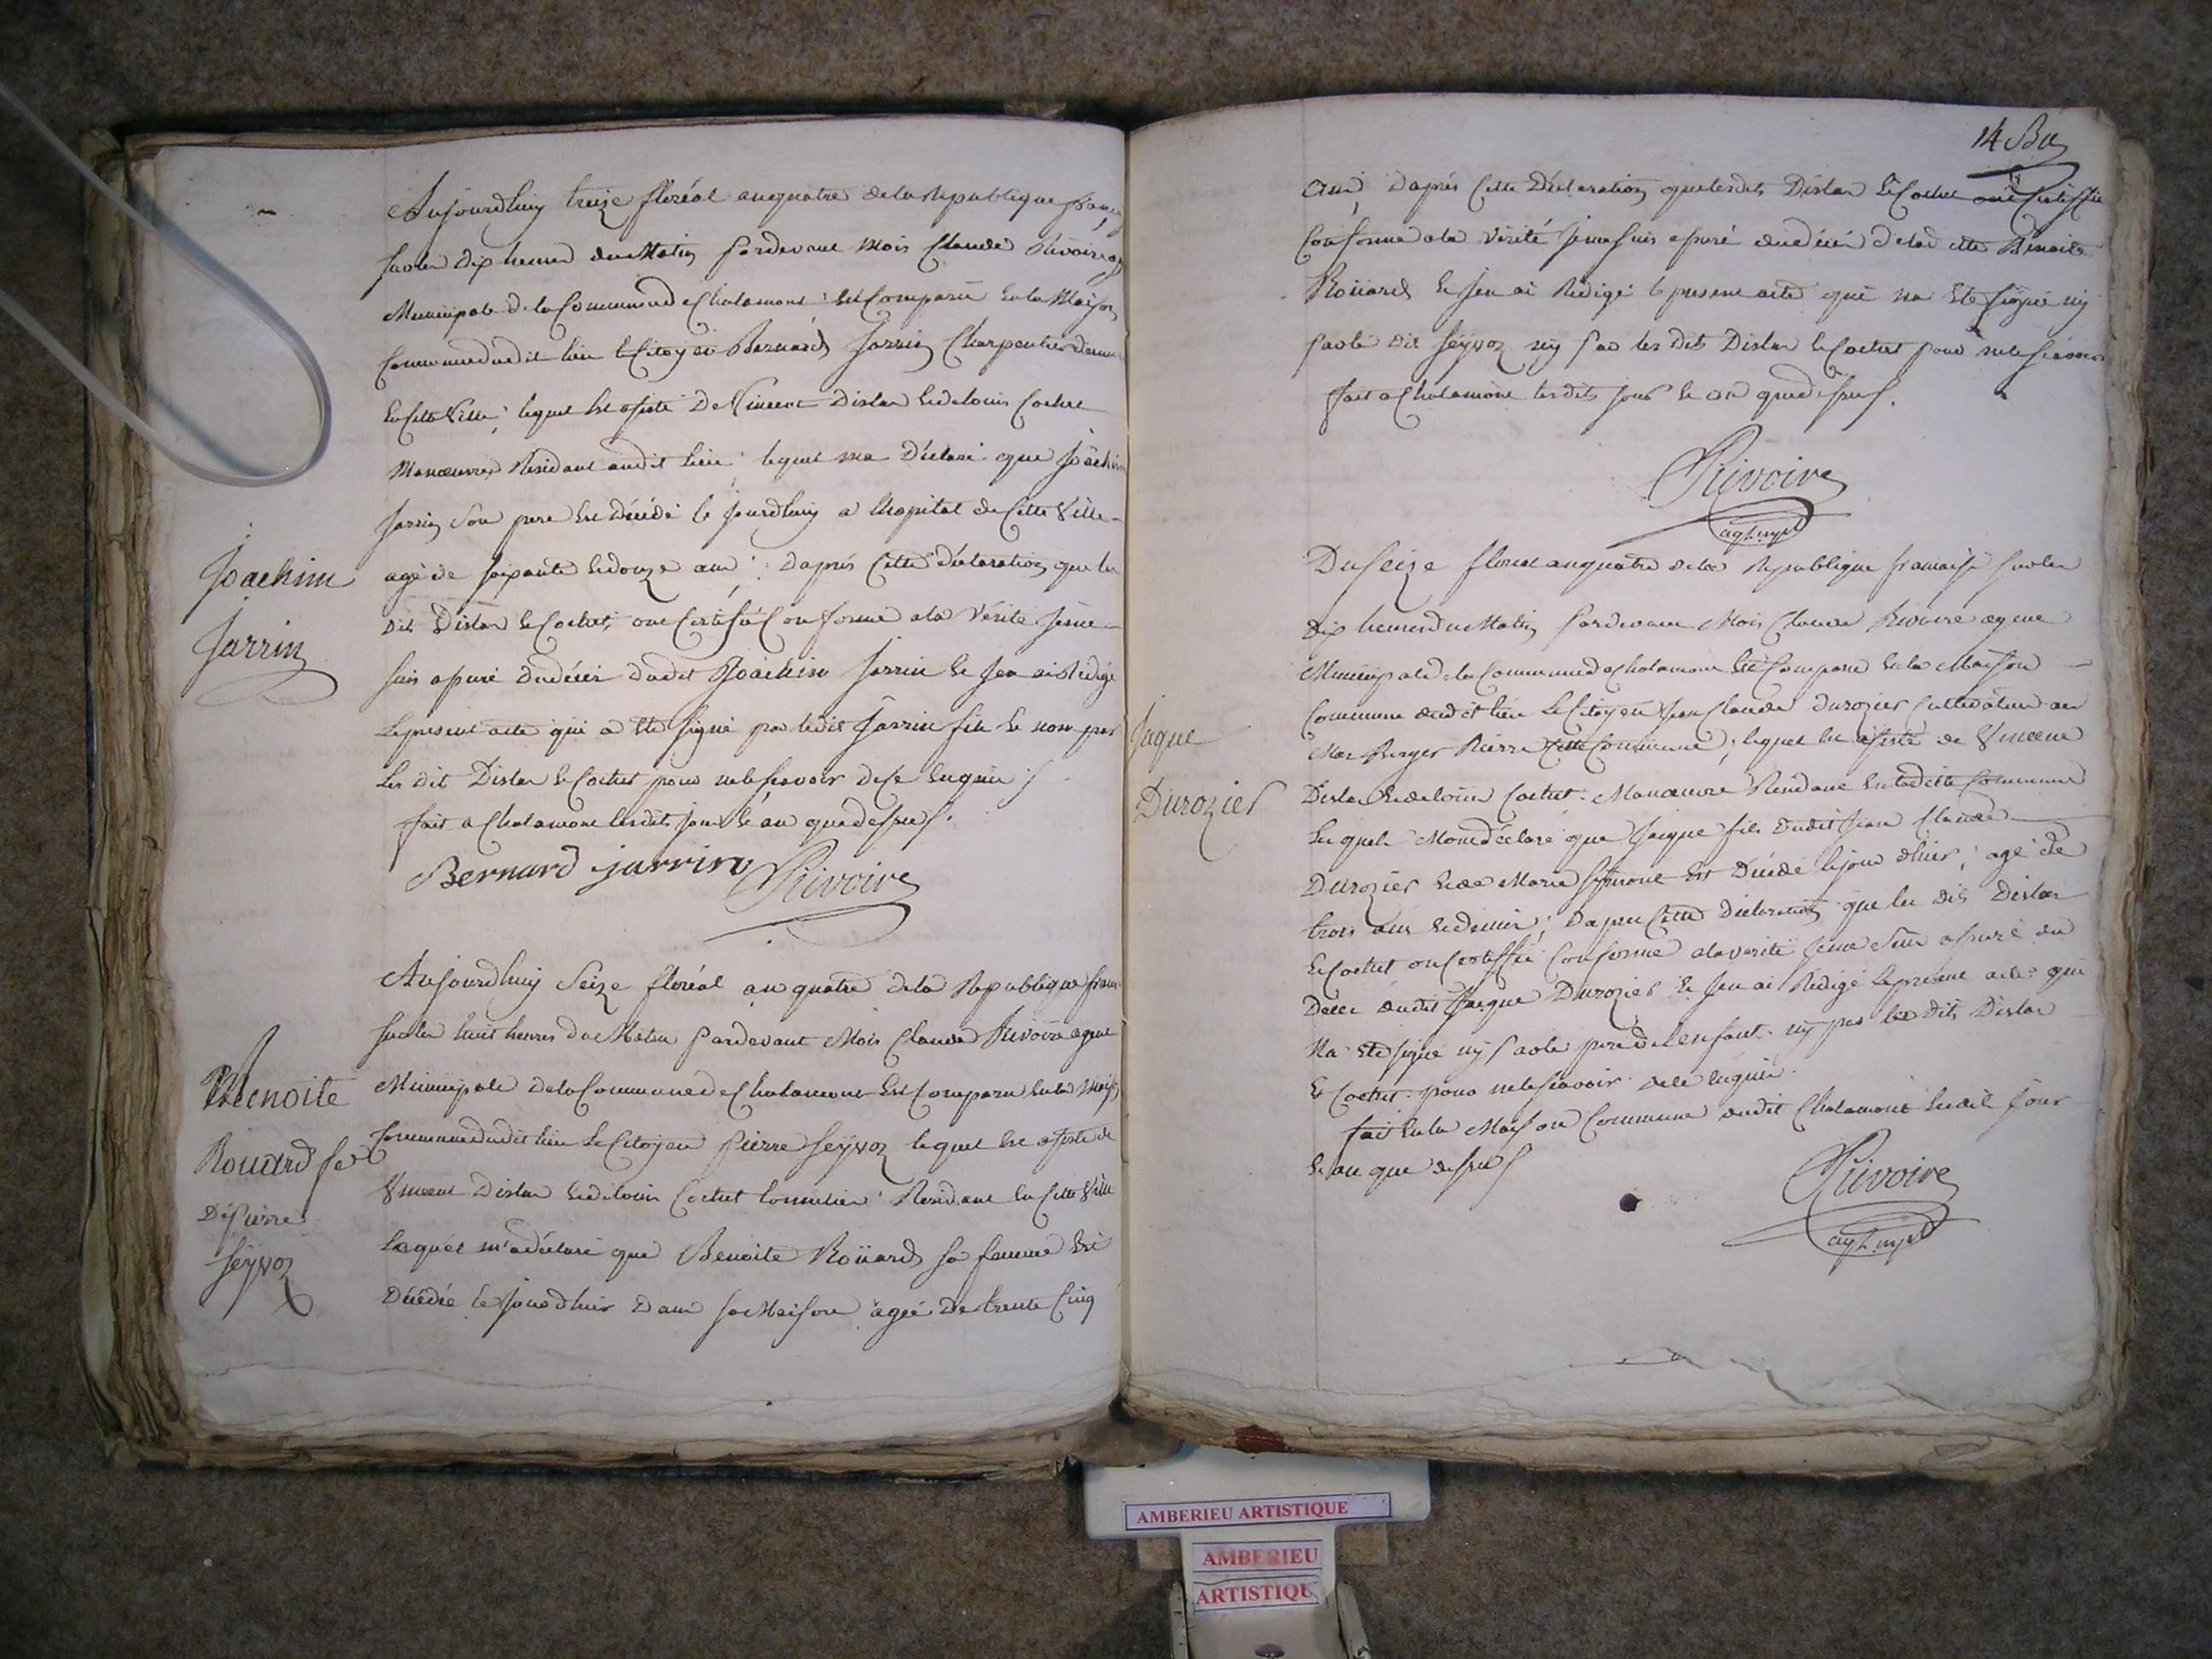 Aujourdhuy treize floréal anquatre dela Republique
sur les dix heures du Matin pardevant Mois Claude Rivoire
Municipale de la Commune de Chalamont est Comparu en la Maison
Commune dudit lieu le Citoyen Bernard Jarrin Charpentier
en Cette Ville; lequel est assisté De Vincent Dislar et de louis Cochet
Manoeuvre Residant audit lieu lequel ma Déclaré que Joachim
Jarrin Son pere est Décédé le jourdhuy a lhopital de Cette Ville
agé de soixante et douze ans; Daprès Cette déclaration que les
dit Dislar et Cochet, ont Certifié Conforme a la Vérité Je me
suis assuré dudécès dudit Joachim Jarrin et Jen ai Rédigé
le présent acte qui a été signé par ledit Jarrin fils et non par
les dit Dislar et Cochet pour ne le sçavoir de ce enquis
fait a Chalamont lesdits jour et an que dessus.
Joachim
Jarrin
Bernard jarrin Rivoire
Aujourdhuy Seize floréal an quatre dela Republique
sur les huit heures du Matin pardevant Mois Claude Rivoire agent
Municipale dela Commune de Chalamont est Comparu en la
Commune dudit lieu le Citoyen Pierre Seÿvoz lequel est assisté de
Vincent Dislar et de louis Cochet Residant en Cette Ville
Lequel m'a déclaré que Benoite Roüard sa femme est
Décédée le jour dhier Dans sa Maison agée de trente Cinq
Benoite
Rouard fe
De Pierre
Seÿvoz
14 Bis
ans; Daprès Cette Déclaration que lesdits Dislar et Cochet ont Certiffié
Conforme ala Vérité je me suis assuré du décès de lad itte Benoite
Roüard et Jen ai Rédigé le présent acte qui na été signé ny
par le dit Seÿvoz ny par les dits Dislar et Cochet pour ne le sçavoir
fait a Chalamont lesdits jour et an que dessus.
Rivoire
agt. mpl
Du Seize floreal anquatre dela Republique française sur les
Dix heures du Matin pardevant Mois Claude Rivoire agent
Municipale dela Commune de Chalamont est Comparu en la Maison
Commune dudit lieu le Citoyen Jean Claude Durozier Cultivateur au
Mas Berger Pierre Cette Commune; lequel est assisté de Vincent
Dislar et de louis Cochet Manoeuvre Résidant en ladite Commune
Lequels Mont déclaré que Jaque fils dudit Jean Claude
Durozier et de Marie est Décédé le jour dhier; agé de
trois ans et demi; Daprès Cette Déclaration que les dits Dislar
et Cochet ont Certiffié Conforme ala vérité je me suis assuré du
Décès dudit Jaque Durozier et Jen ai Rédigé le présent acte qui
Na été signé ny par le pere de lenfant ny par les dits Dislar
et Cochet pour ne le sçavoir de ce enquis.
fait en la Maison Commune dudit Chalamont lesdit jour
et an que dessus
Jaque
Durozier
Rivoire
agt. mpl
AMBERIEU ARTISTIQUE
AMBERIEU
ARTISTIQU